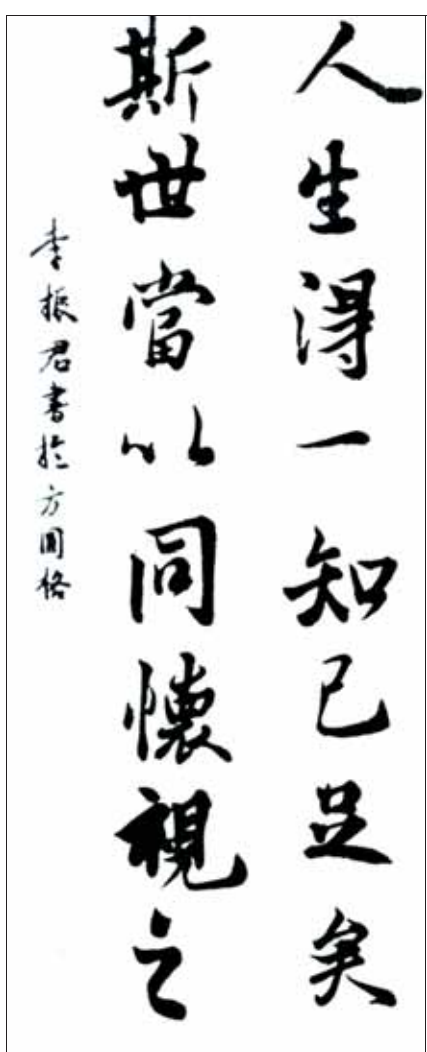 人生得一知己足矣
斯世當以同懷視之
李振君書於方圓格